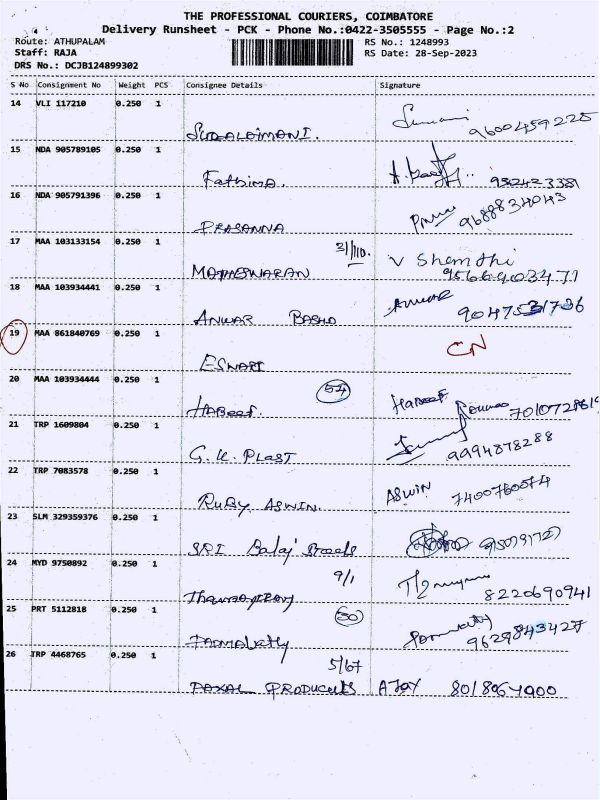 THE PROFESSIONAL COURIERS, COIMBATORE
Delivery Runsheet - PCK - Phone No.:0422-3505555 - Page No.:2
Route: ATHUPALAM RS No.: 1248993
Staff: RAJA RS Date: 28-Sep-2023
DRS No.: DCJB124899302
S No Consignment No Weight PCS Consignee Details Signature
14 VLI 117210 0.250 1
SUDALAIMANI. 9600459225
15 NDA 905789105 0.250 1
Fathima.
16 NDA 905791396 0.250 1
PRASANNA 9688834043
17 MAA 103133154 0.250 1
MATHESWARAN V Shanthi
9566403471
18 MAA 103934441 0.250 1
ANWAR BASHA Anwar 9047531736
19 MAA 861840769 0.250 1 CN
ESWARI
20 MAA 103934444 0.250 1 54
HABEEF. HABEEF
21 TRP 1609804 0.250 1
G.K. PLAST 9994878288
22 TRP 7083578 0.250 1
RUBY ASWIN ASWIN 7400760574
23 SLM 329359376 0.250 1
SRI Balaj Steels
24 MYD 9750892 0.250 1 9/1
8220690941
25 PRT 5112818 0.250 1 50
9629843427
26 TRP 4468765 0.250 1 5/67
PRODUCTS AJAY